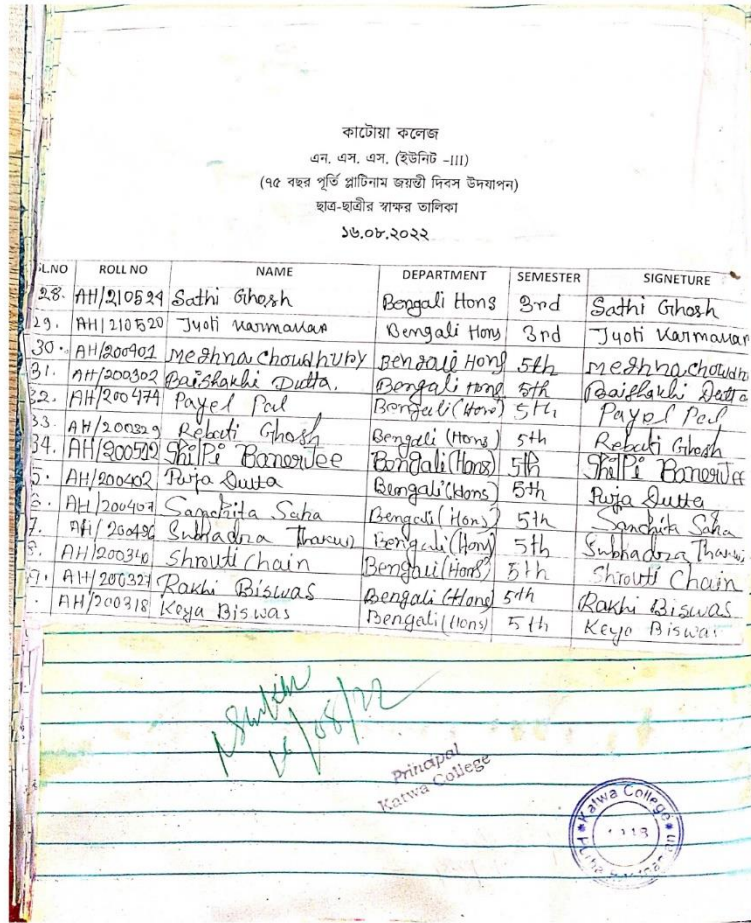 কাটোয়া কলেজ
এন. এস. এস. (ইউনিট -III)
(৭৫ বছর পূর্তি প্লাটিনাম জয়ন্তী দিবস উদযাপন)
ছাত্র-ছাত্রীর স্বাক্ষর তালিকা
১৬.০৮.২০২২
SL.NO ROLL NO NAME DEPARTMENT SEMESTER SIGNETURE
28. AH/210524 Sathi Ghosh Bengali Hons 3rd Sathi Ghosh
29. AH/210520 Jyoti Karmakar Bengali Hons 3rd Jyoti Karmakar
30. AH/200401 Meghna Choudhury Bengali Hons 5th Meghna Choudh
31. AH/200302 Baishakhi Dutta. Bengali Hons 5th Baishakhi Dutta
32. AH/200474 Payel Pal Bengali (Hons) 5th Payel Pal
33. AH/200329 Rebati Ghosh Bengali (Hons) 5th Rebati Ghosh
34. AH/200512 Shilpi Banerjee Bengali (Hons) 5th Shilpi Banerjee
5. AH/200402 Puja Dutta Bengali (Hons) 5th Puja Dutta
6. AH/200407 Sanchita Saha Bengali (Hons) 5th Sanchita Saha
7. AH/200496 Subhadra Thakur Bengali (Hons) 5th Subhadra Thakur
8. AH/200340 Shruti Chain Bengali (Hons) 5th Shruti Chain
9. AH/200327 Rakhi Biswas Bengali (Hons) 5th Rakhi Biswas
. AH/200318 Keya Biswas Bengali (Hons) 5th Keya Biswas
16/08/22
Principal
Katwa College
Katwa College